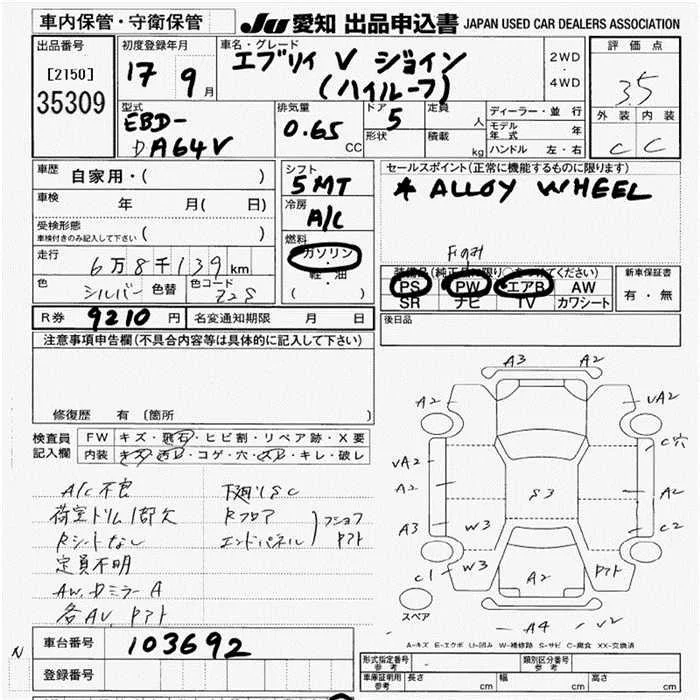 車内保管・守衛保管
JU 愛知 出品申込書 JAPAN USED CAR DEALERS ASSOCIATION
出品番号
[2150]
35309
初度登録年月
17 9月
車名・グレード
エブリイ V ジョイン
(ハイルーフ)
2WD
・
4WD
評価点
3.5
外装 内装
C C
型式
EBD-
DA64V
排気量
0.65 CC
ドア 5
形状
定員 人
積載 kg
ディーラー・並行
モデル年式 年
ハンドル 左・右
車歴 自家用・( )
車検 年 月( 日)
受検形態
車検付きのみ記入して下さい ( )
走行 6万8千139km
色 シルバー 色替 色コード Z2S
シフト
5MT
冷房
A/C
燃料
ガソリン
・
軽油
( )
セールスポイント(正常に機能するものに限ります)
* ALLOY WHEEL
PS PW エアB AW
SR ナビ TV カワシート
新車保証書
有・無
R券 9210 円 名変通知期限 月 日
後日品
注意事項申告欄(不具合内容等は具体的に記入して下さい)
修復歴 有 〔箇所 〕
検査員
記入欄
FW キズ・飛石・ヒビ割・リペア跡・X要
内装 キズ・汚レ・コゲ・穴・スレ・キレ・破レ
A/C不良
荷室トリム1部欠
Rシートなし
定員不明
AW、DミラーA
各AV、アト
下廻りSC
Rフロア
エンドパネル
A3 A2
A2 vA2
C穴
vA2
A2 S3 A2
A3 W3 C2
C1 W3 A2 アト
スペア
A4 v2
A-キズ E-エクボ U-凹み W-補修跡 S-サビ C-腐食 XX-交換済
N
車台番号 103692
登録番号
形式指定番号 参考
類別区分番号 参考
車庫証明用 参考 長さ cm 幅 cm 高さ cm